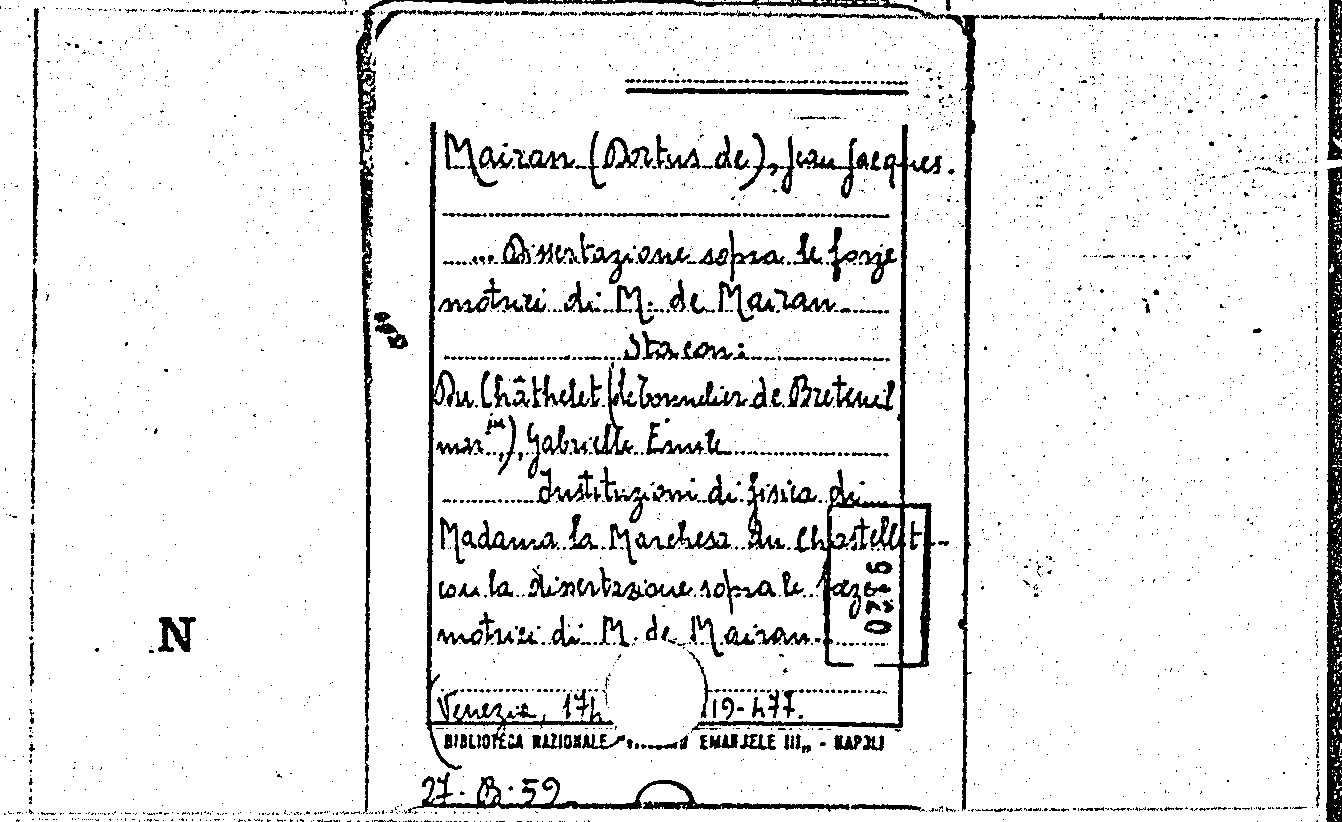 Mairan (Dortus de), Jean Jacques.
... Dissertazione sopra le forze
motrici di M. de Mairan.
Sta con:
Du Châthelet (le Tonnelier de Breteuil
mar.), Gabrielle Emile
Instituzioni di fisica di
Madama la Marchesa du Chastellet
con la dissertazione sopra le forze
motrici di M. de Mairan.
Venezia, 174 419-477.
BIBLIOTECA NAZIONALE EMANUELE III„ - NAPOLI
27. B. 59
N